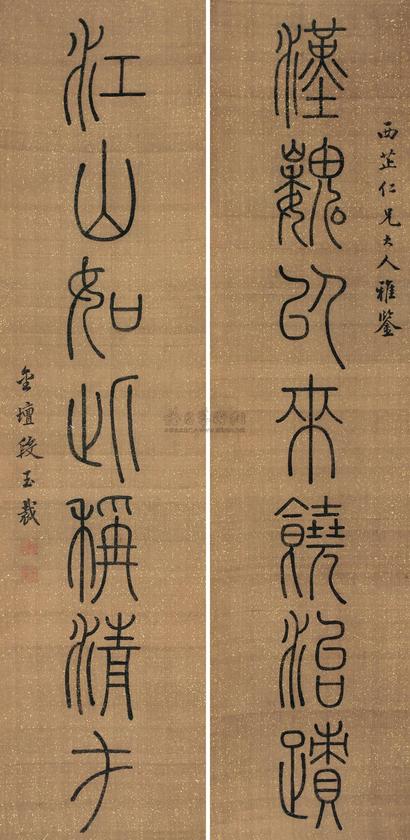 西芷仁兄大人雅鑒
漢魏以來饒治蹟
江山如此稱清才
金壇段玉裁